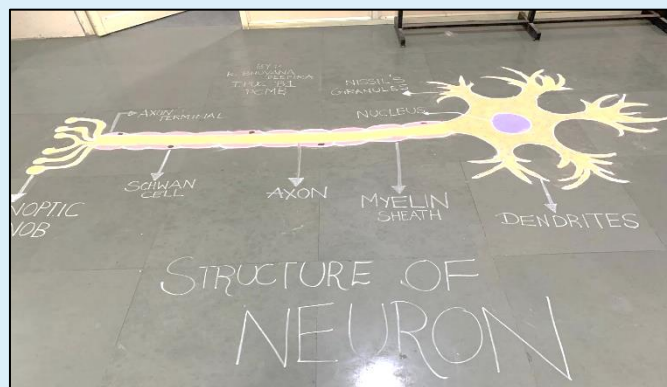 NISSIL'S
GRANULES
NUCLEUS
AXON
TERMINAL
SCHWAN
CELL
AXON
MYELIN
SHEATH
DENDRITES
NOPTIC
NOB
STRUCTURE OF
NEURON